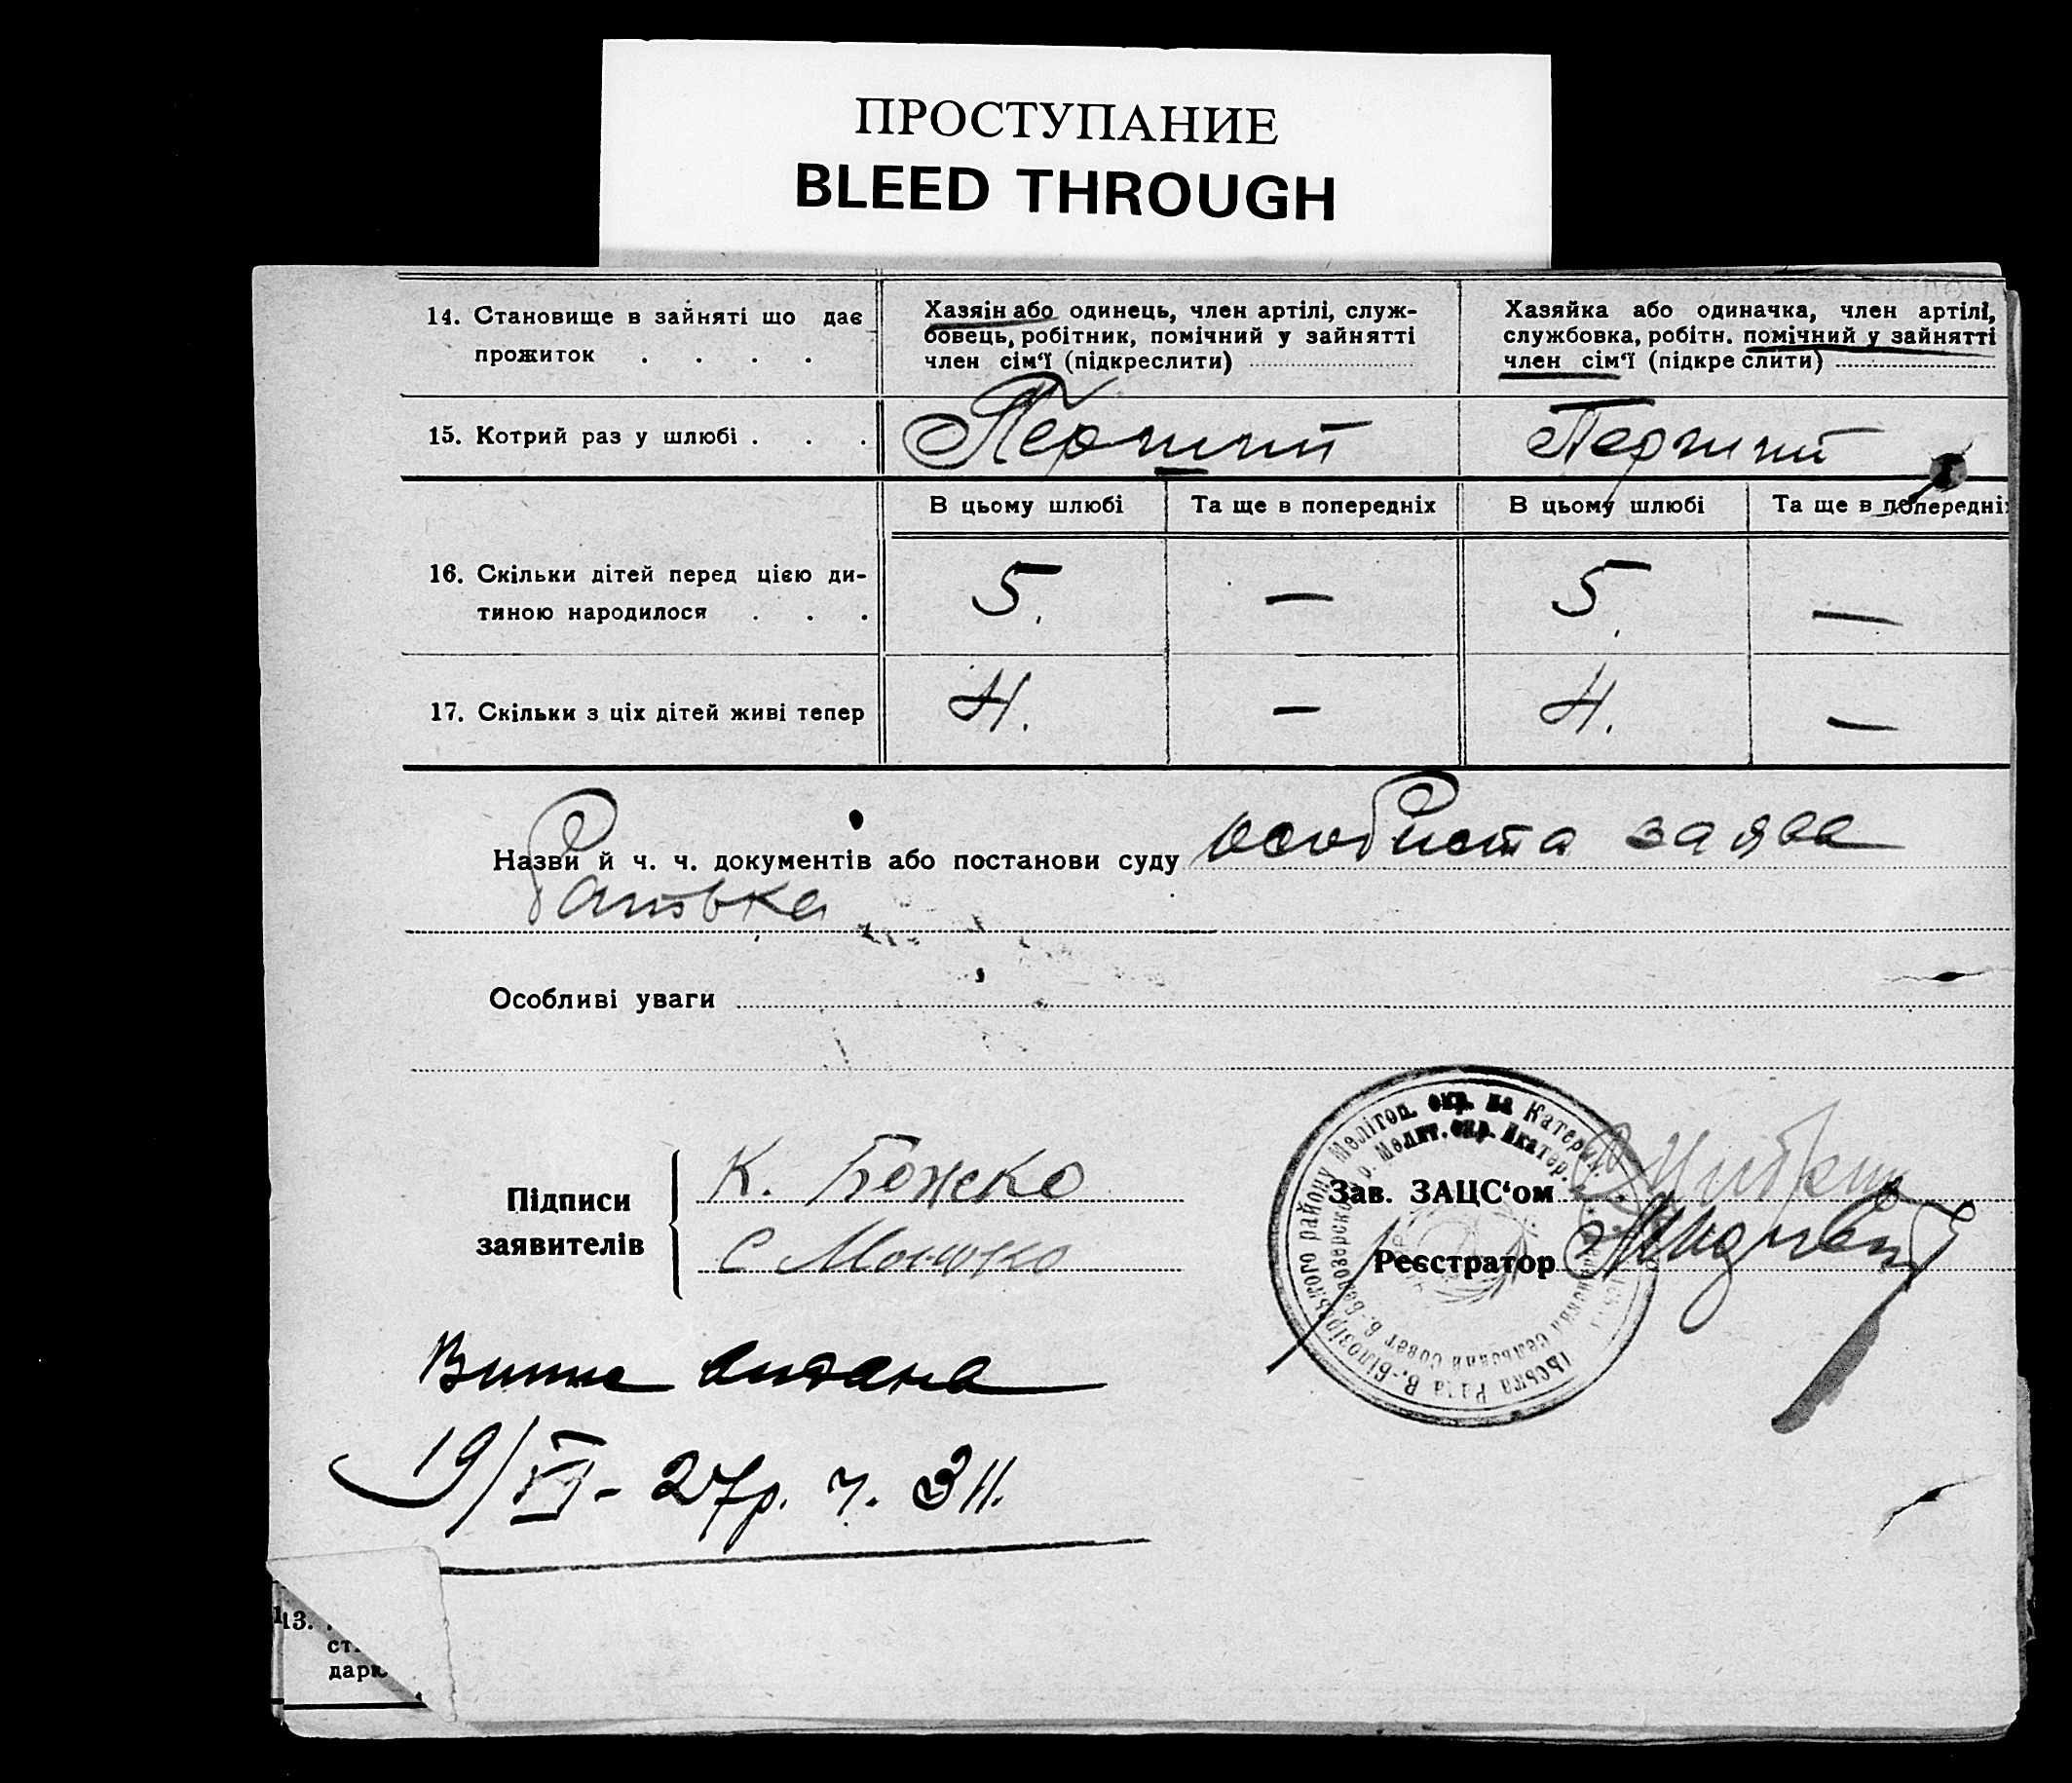 ПРОСТУПАНИЕ
BLEED THROUGH
14. Становище в зайняті що дає
прожиток . . . .
Хазяін або одинець, член артілі, служ-
бовець, робітник, помічний у зайнятті
член сім‘ї (підкреслити)
Хазяйка або одиначка, член артілі,
службовка, робітн. помічний у зайнятті
член сім‘ї (підкреслити)
15. Котрий раз у шлюбі . . .
Перший
Перший
В цьому шлюбі
Та ще в попередніх
В цьому шлюбі
Та ще в попередніх
16. Скільки дітей перед цією ди-
тиною народилося . . .
5.
—
5.
—
17. Скільки з ціх дітей живі тепер
4.
—
4.
—
Назви й ч. ч. документів або постанови суду особиста заява
Особливі уваги
Підписи
заявителів
К. Божко
С
Зав. ЗАЦС‘ом
Реєстратор
район Меліто­п. окр. на Катерин.
Мелит. окр. Екатер.
Сельский Совет В.-Белозерск
Рада В.-Білозір
19/VI - 27р. ч. 311.
13.
ст
дарю